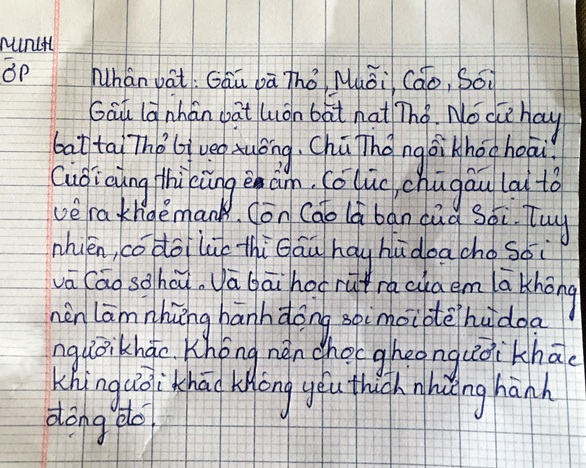 MINH
ỚP
Nhân vật: Gấu và Thỏ, Muỗi, Cáo, Sói
Gấu là nhân vật luôn bắt nạt Thỏ. Nó cứ hay
bạt tai Thỏ bị vẹo xuống. Chú Thỏ ngồi khóc hoài.
Cuối cùng thì cũng êm ấm. Có lúc, chú gấu lại tỏ
vẻ ra khoẻ mạnh. Còn Cáo là bạn của Sói. Tuy
nhiên, có đôi lúc thì Gấu hay hù doạ cho Sói
và Cáo sợ hãi. Và bài học rút ra của em là không
nên làm những hành động soi mói để hù doạ
người khác. Không nên chọc ghẹo người khác
khi người khác không yêu thích những hành
động đó.